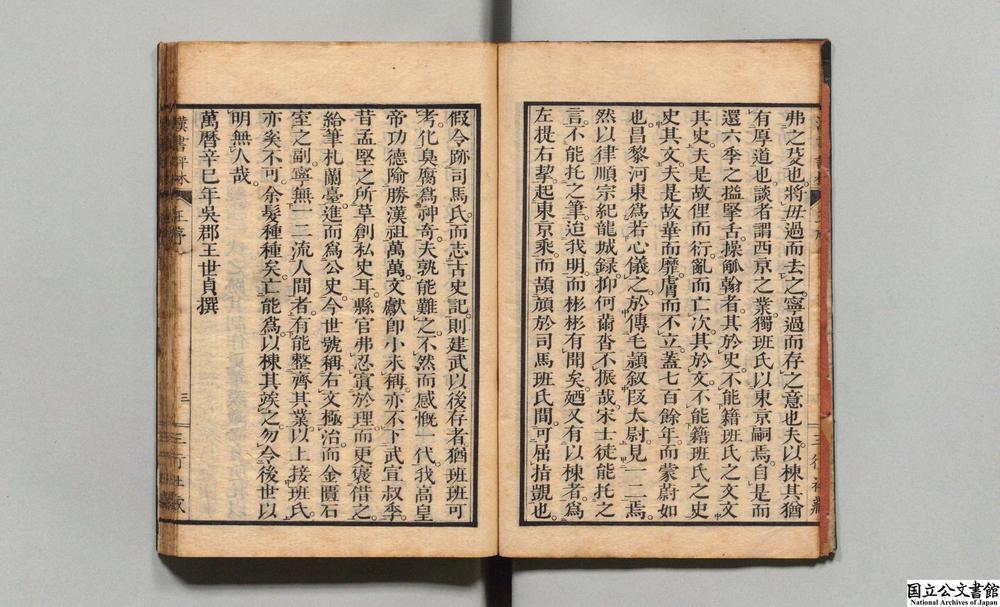 弗之芟也將毋過而去之寧過而存之意也夫以棟其猶
有厚道也談者謂西京之業獨班氏以東京嗣焉自是而
還六季之搤掔舌操觚翰者其於史不能籍班氏之文文
其史夫是故俚而衍亂而亡次其於文不能籍班氏之史
史其文夫是故華而靡膚而不立蓋七百餘年而蒙蔚如
也昌黎河東為若心儀之於傳毛穎叙段太尉見一二焉
然以律順宗紀龍城録抑何薾沓不振哉宋士徒能托之
言不能托之筆迨我明而彬彬有聞矣廼又有以棟者為
左提右挈起東京乘而頡頏於司馬班氏間可屈指覬也
假令跡司馬氏而志古史記則建武以後存者猶班班可
考化臭腐為神奇夫孰能難之不然而感慨一代我高皇
帝功德隃勝漢祖萬萬文獻卽小未稱亦不下武宣叔季
昔孟堅之所草創私史耳縣官弗忍寘於理而更褒借之
給筆札蘭臺進而為公史今世號稱右文極治而金匱石
室之副寧無一二流人間者有能整齊其業以上接班氏
亦奚不可余髮種種矣亡能為以棟其竢之勿令後世以
明無人哉
萬曆辛巳年吳郡王世貞撰
漢書評林
王序
三
国立公文書館
National Archives of Japan